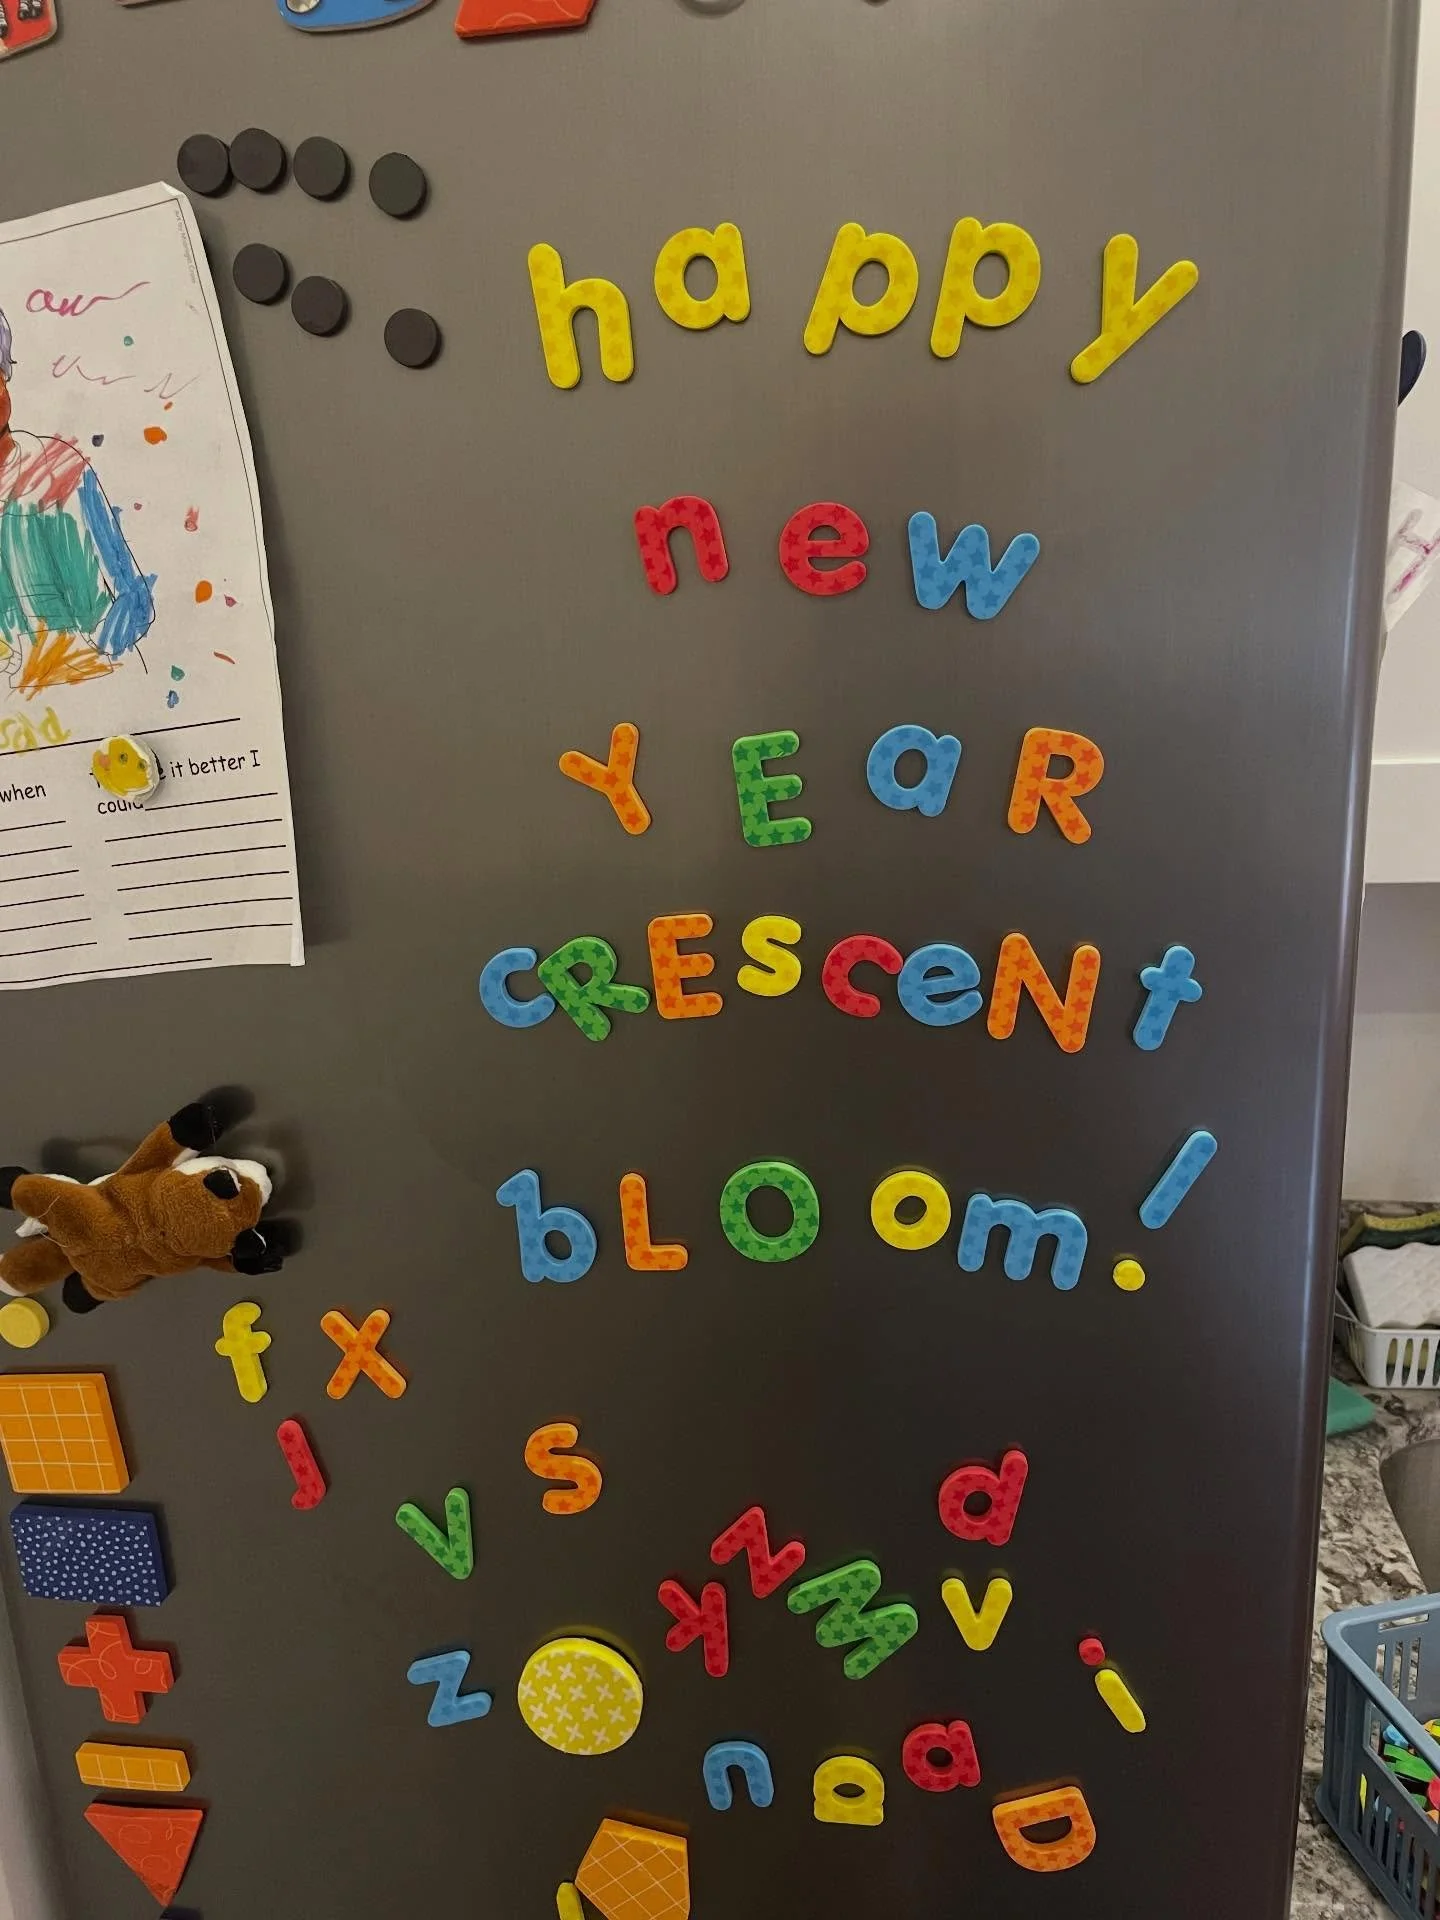 happy
new
YEaR
CREsceNt
bLOom!
it better I
when
could
f x
J
s
v
d
z
K
M
v
z
i
n
a
a
D